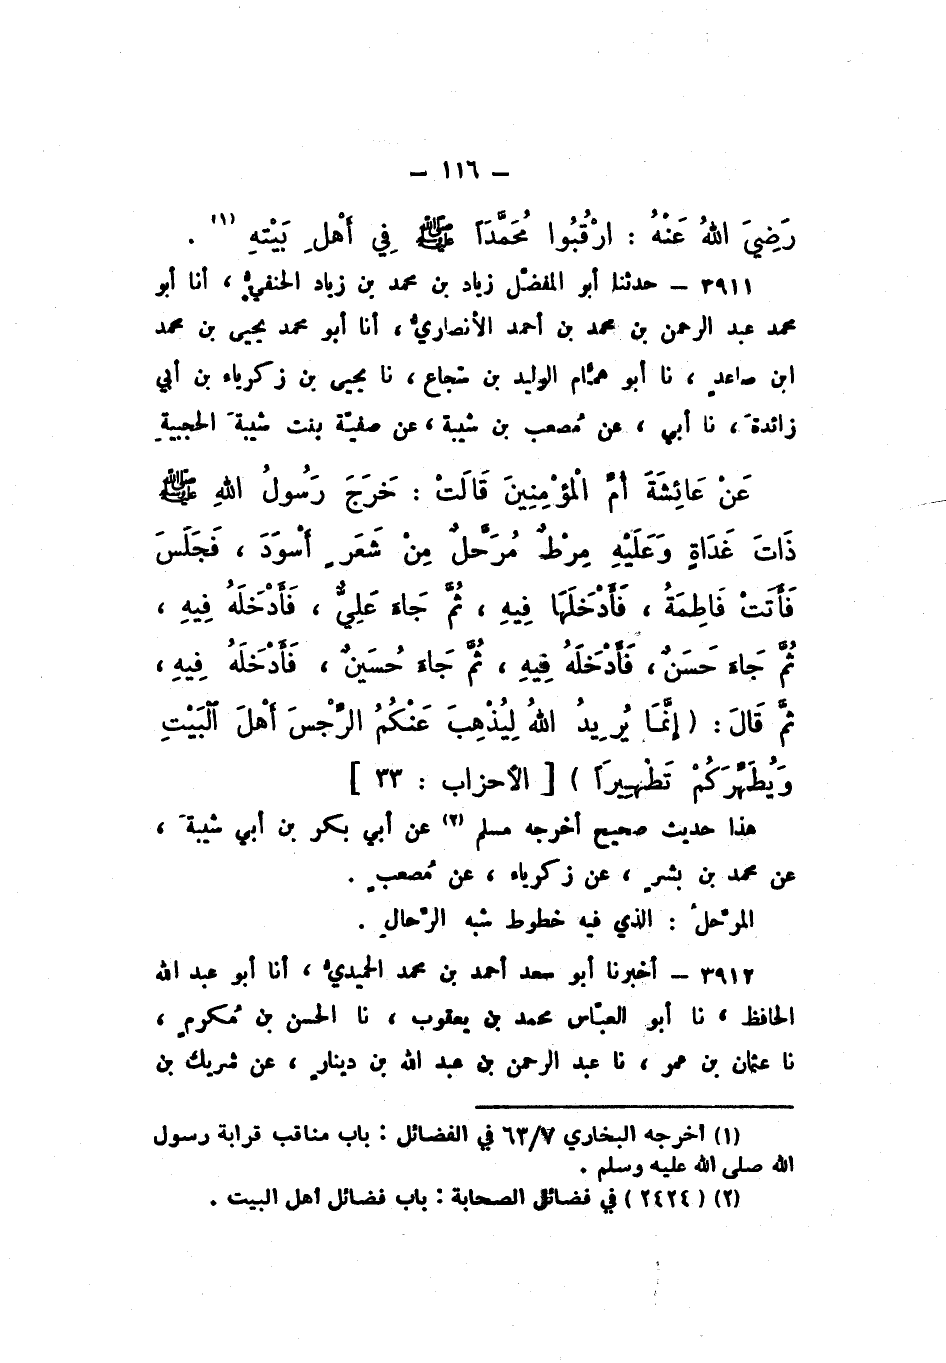 – ١١٦ –
رَضِيَ اللهُ عَنْهُ : ارْقُبُوا مُحَمَّدَاً ﷺ فِي أَهْلِ بَيْتِهِ (١) .
٣٩١١ – حدثنا أبو المفضّل زياد بن محمد بن زياد الحنفيُّ ، أنا أبو
محمد عبد الرحمن بن محمد بن أحمد الأنصاريُّ ، أنا أبو محمد يحيى بن محمد
ابن صاعدٍ ، نا أبو همَّام الوليد بن شجاع ، نا يحيى بن زكرياء بن أبي
زائدةَ ، نا أبي ، عن مُصعب بن شيبة ، عن صفيّة بنت شيبةَ الحجبيةِ
عَنْ عَائِشَةَ أُمِّ الْمُؤْمِنِينَ قَالَتْ : خَرَجَ رَسُولُ اللهِ ﷺ
ذَاتَ غَدَاةٍ وَعَلَيْهِ مِرْطٌ مُرَحَّلٌ مِنْ شَعَرٍ أَسْوَدَ ، فَجَلَسَ
فَأَتَتْ فَاطِمَةُ ، فَأَدْخَلَهَا فِيهِ ، ثُمَّ جَاءَ عَلِيٌّ ، فَأَدْخَلَهُ فِيهِ ،
ثُمَّ جَاءَ حَسَنٌ ، فَأَدْخَلَهُ فِيهِ ، ثُمَّ جَاءَ حُسَينٌ ، فَأَدْخَلَهُ فِيهِ ،
ثُمَّ قَالَ : ( إِنَّمَا يُرِيدُ اللهُ لِيُذْهِبَ عَنْكُمُ الرِّجْسَ أَهْلَ ٱلْبَيْتِ
وَيُطَهِّرَكُمْ تَطْهِيرَاً ) [ الأحزاب : ٣٣ ]
هذا حديث صحيح أخرجه مسلم (٢) عن أبي بكر بن أبي شيبةَ ،
عن محمد بن بشرٍ ، عن زكرياء ، عن مُصعبٍ .
المرَحلُ : الذي فيه خطوط شبه الرِّحالِ .
٣٩١٢ – أخبرنا أبو سعد أحمد بن محمد الحميديُّ ، أنا أبو عبد الله
الحافظ ، نا أبو العبّاس محمد بن يعقوب ، نا الحسن بن مُكرمٍ ،
نا عثمان بن عمر ، نا عبد الرحمن بن عبد الله بن دينارٍ ، عن شريك بن
(١) أخرجه البخاري ٦٣/٧ في الفضائل : باب مناقب قرابة رسول
الله صلى الله عليه وسلم .
(٢) (٢٤٢٤) في فضائل الصحابة : باب فضائل أهل البيت .